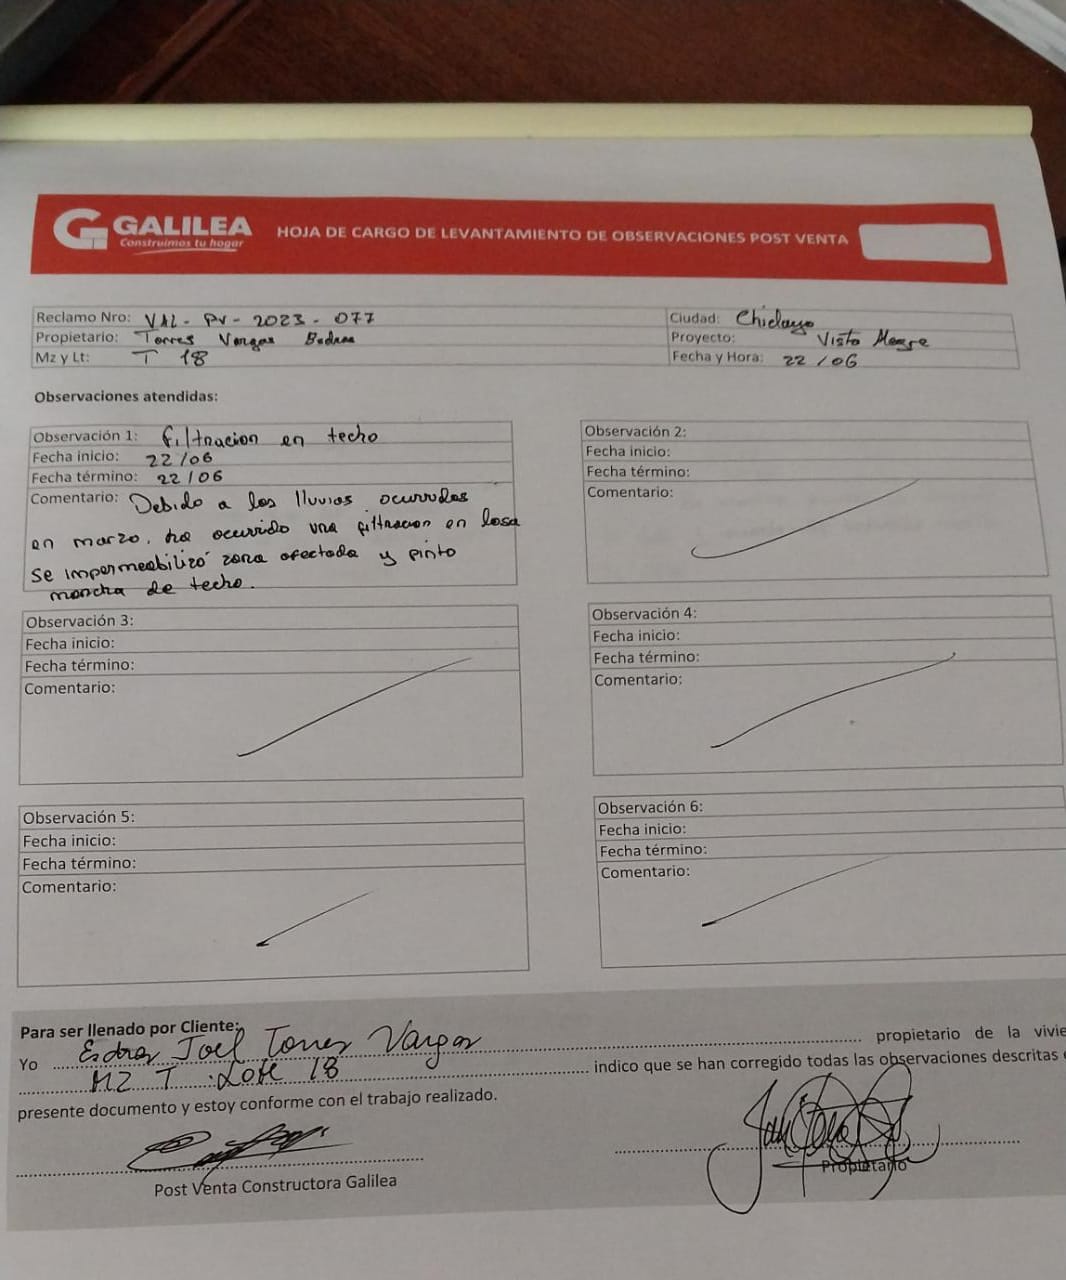 GALILEA
Construimos tu hogar
HOJA DE CARGO DE LEVANTAMIENTO DE OBSERVACIONES POST VENTA
Reclamo Nro: VAL - PV - 2023 - 077
Ciudad: Chiclayo
Propietario: Torres Vargas
Proyecto: Vista Alegre
Mz y Lt: T 18
Fecha y Hora: 22 / 06
Observaciones atendidas:
Observación 1: filtracion en techo
Fecha inicio: 22/06
Fecha término: 22/06
Comentario: Debido a las lluvias ocurridas
en marzo, ha ocurrido una filtracion en losa
Se impermeabilizó zona afectada y pinto
mancha de techo.
Observación 2:
Fecha inicio:
Fecha término:
Comentario:
Observación 3:
Fecha inicio:
Fecha término:
Comentario:
Observación 4:
Fecha inicio:
Fecha término:
Comentario:
Observación 5:
Fecha inicio:
Fecha término:
Comentario:
Observación 6:
Fecha inicio:
Fecha término:
Comentario:
Para ser llenado por Cliente:
Yo Esdras Joel Torres Vargas propietario de la vivie
MZ T Lote 18 indico que se han corregido todas las observaciones descritas
presente documento y estoy conforme con el trabajo realizado.
Post Venta Constructora Galilea
Propietario